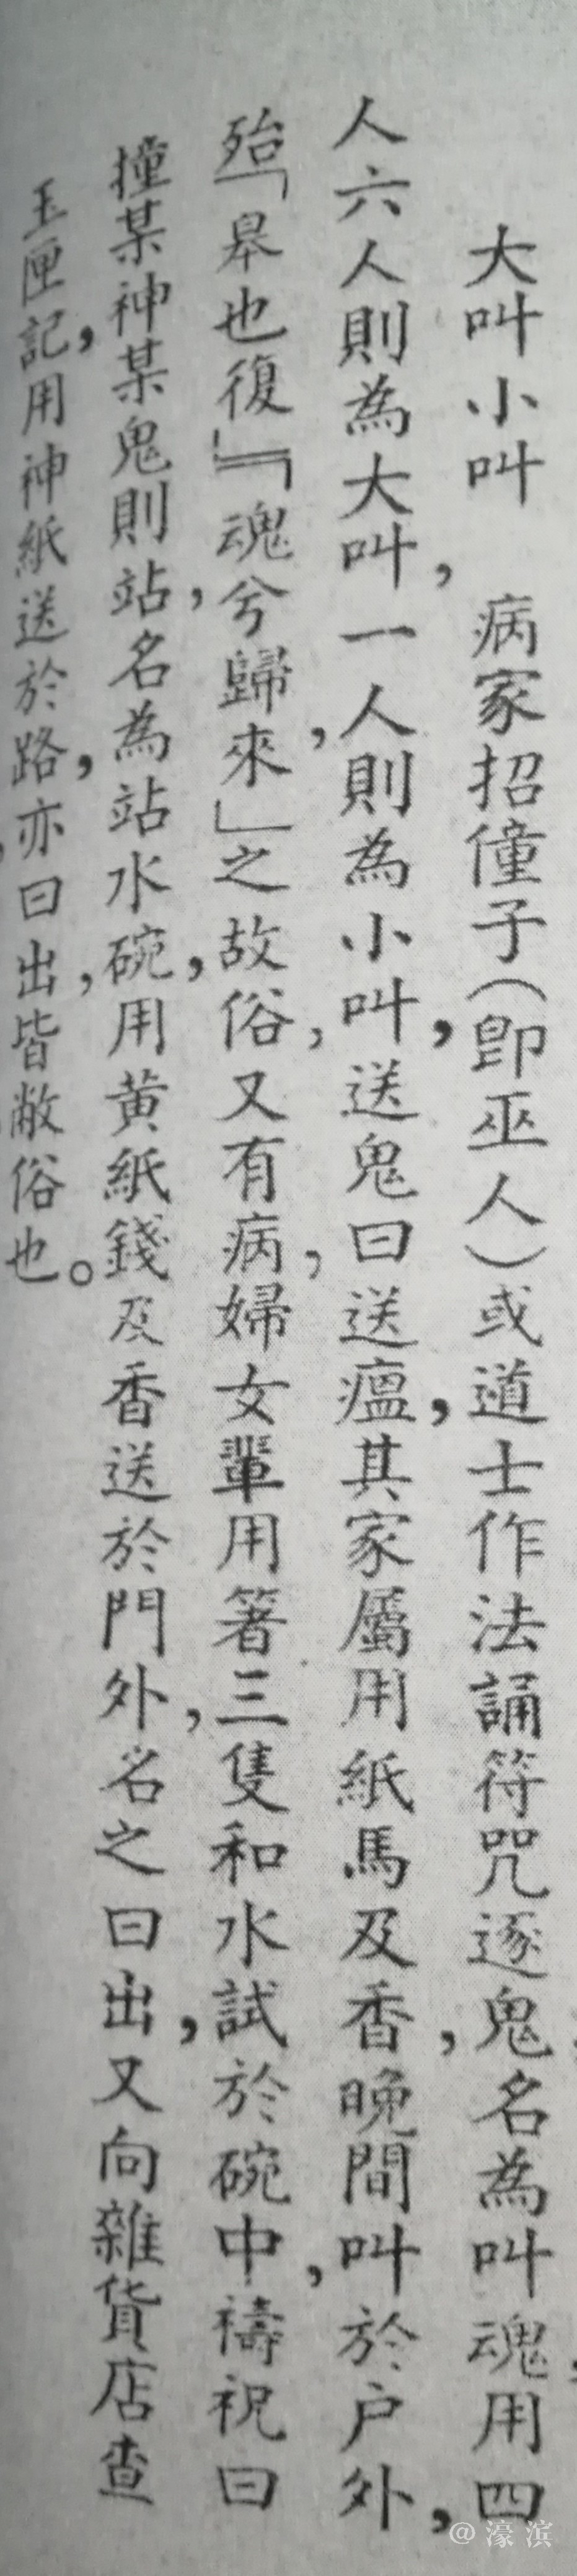 大叫小叫　病家招僮子(卽巫人)或道士作法誦符咒逐鬼名為叫魂用四
人六人則為大叫，一人則為小叫，送鬼曰送瘟，其家屬用紙馬及香，晚間叫於户外，
殆「皋也復」『魂兮歸來』之故俗，又有病，婦女輩用箸三隻和水試於碗中，禱祝曰
撞某神某鬼則站，名為站水碗，用黃紙錢及香送於門外，名之曰出，又向雜貨店查
玉匣記，用神紙送於路，亦曰出，皆敝俗也。
@濠滨